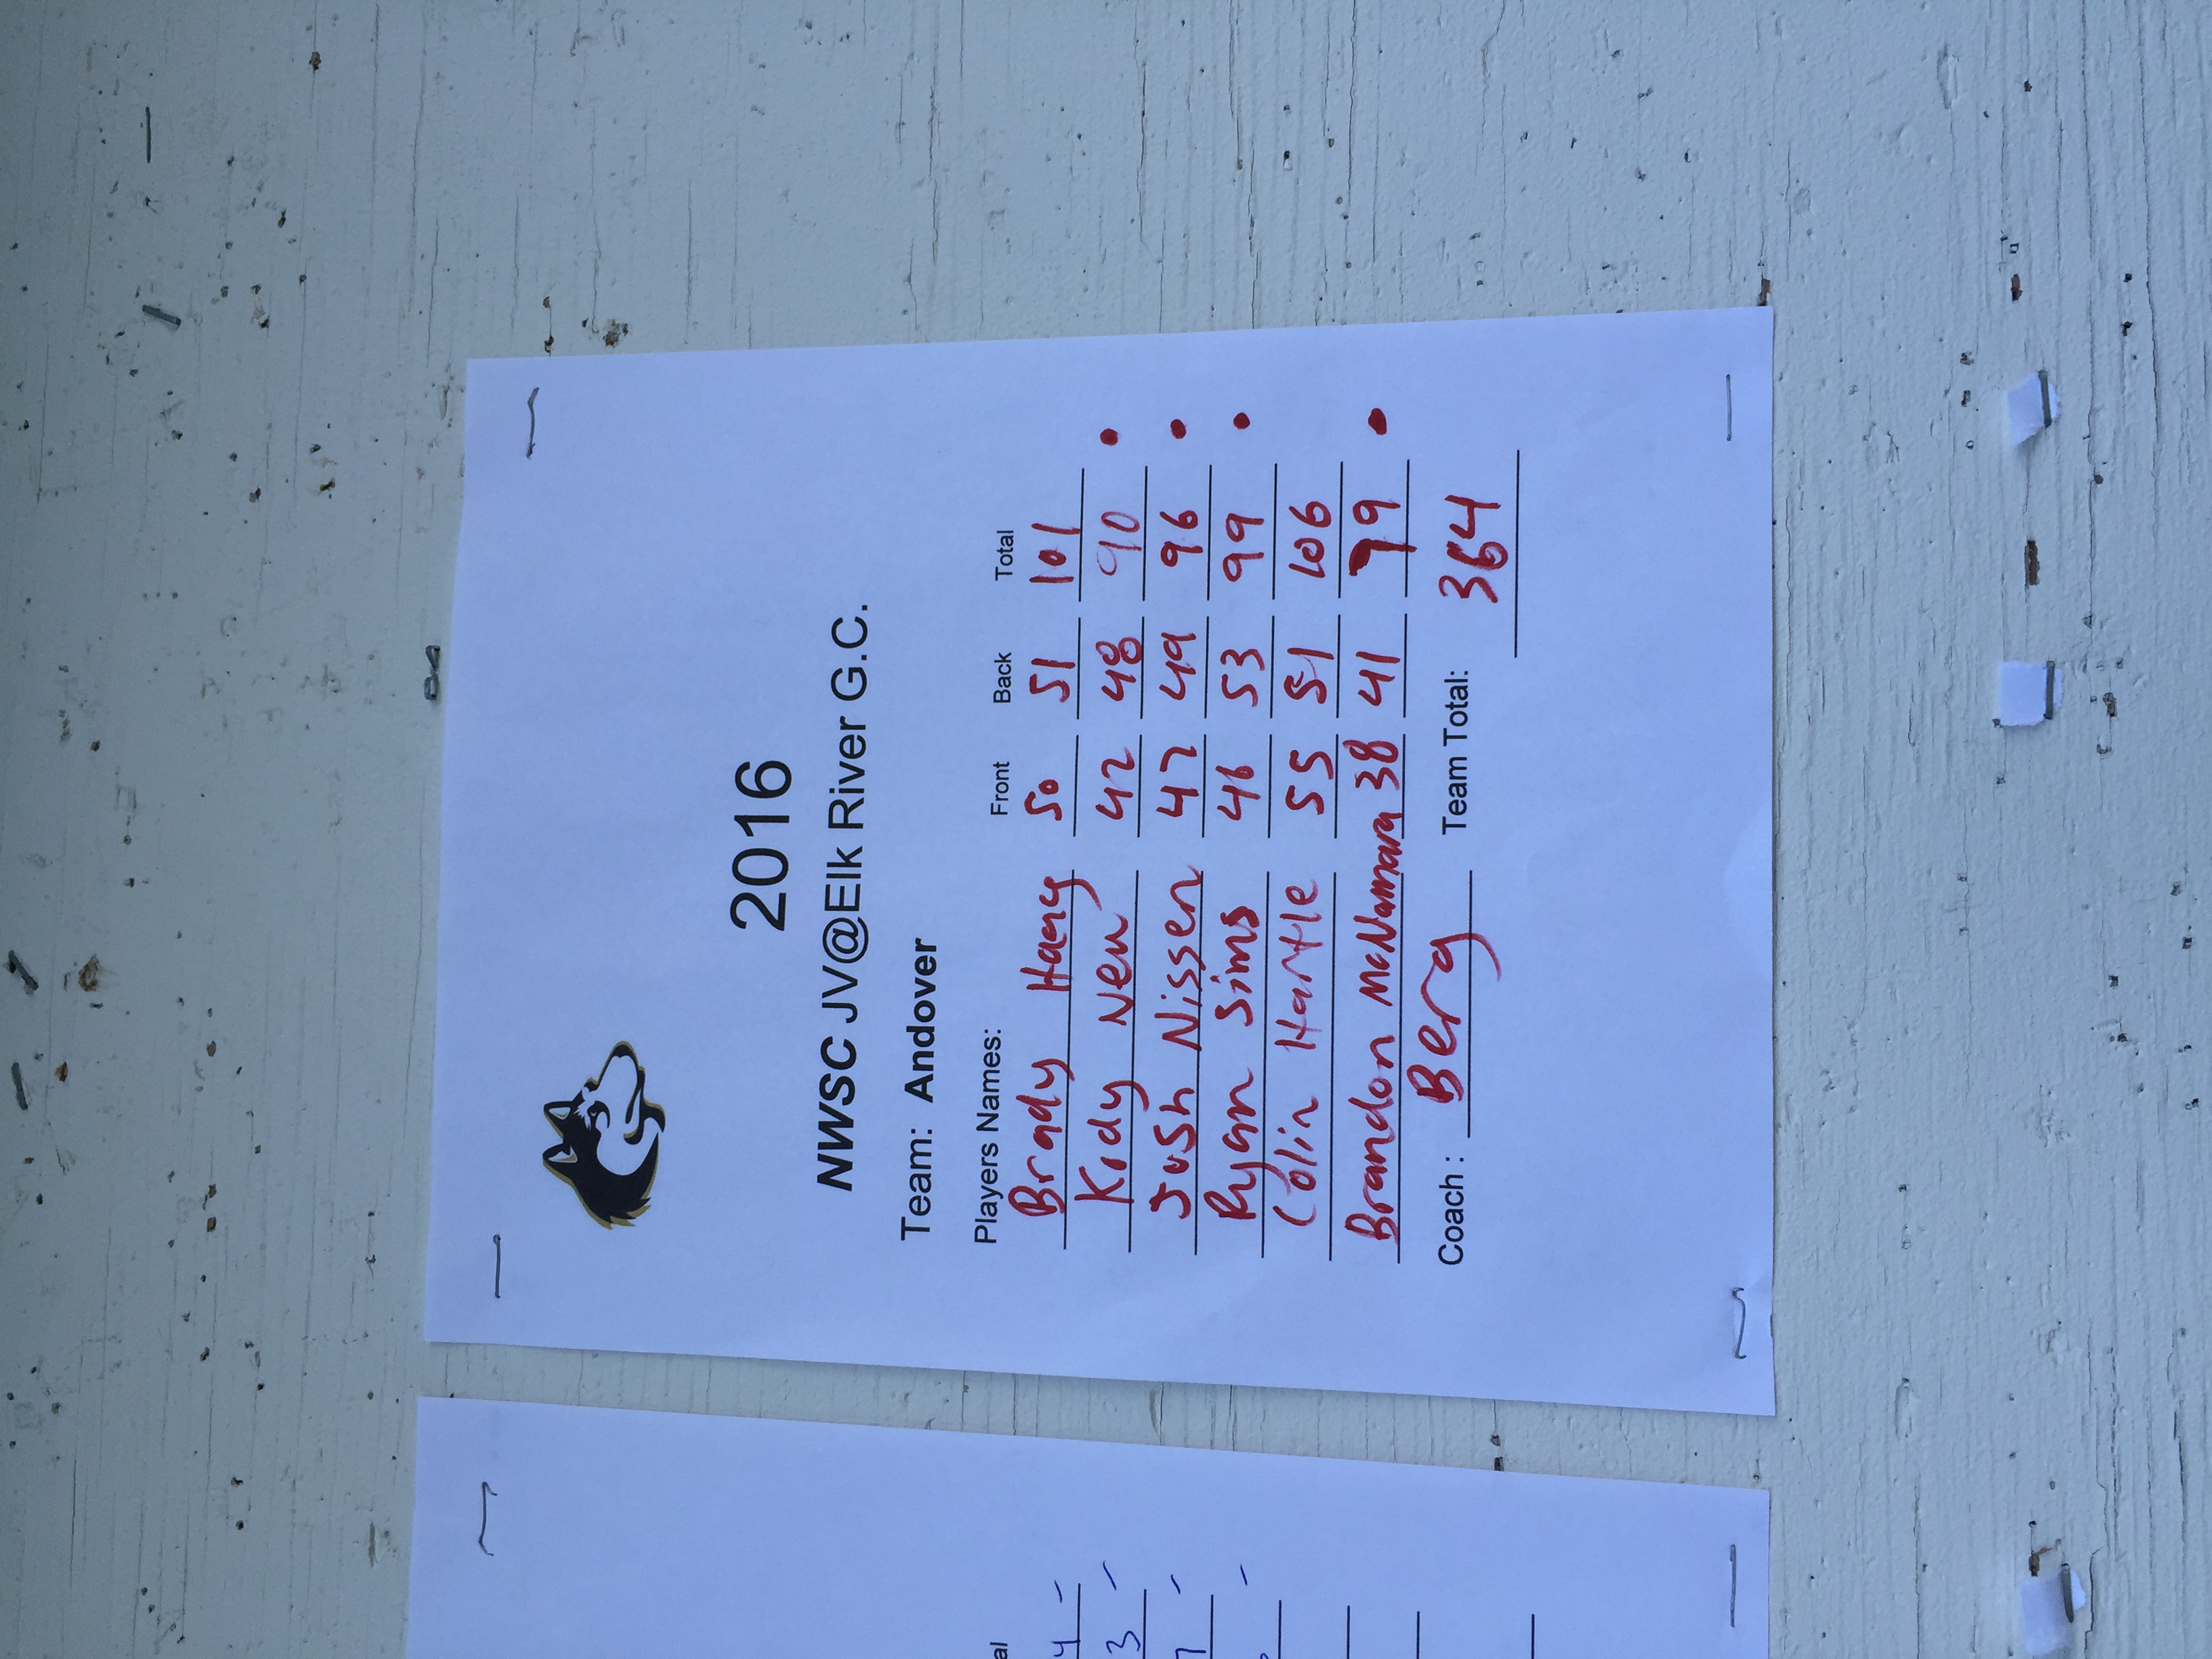 2016
NWSC JV@Elk River G.C.
Team: Andover
Players Names: Front Back Total
Brady Haeg 50 51 101
Kody Neu 42 48 90
Josh Nissen 47 49 96
Ryan Sims 46 53 99
Colin Hartle 55 51 106
Brandon McNamara 38 41 79
Coach : Berg Team Total: 364
al
4
3
7